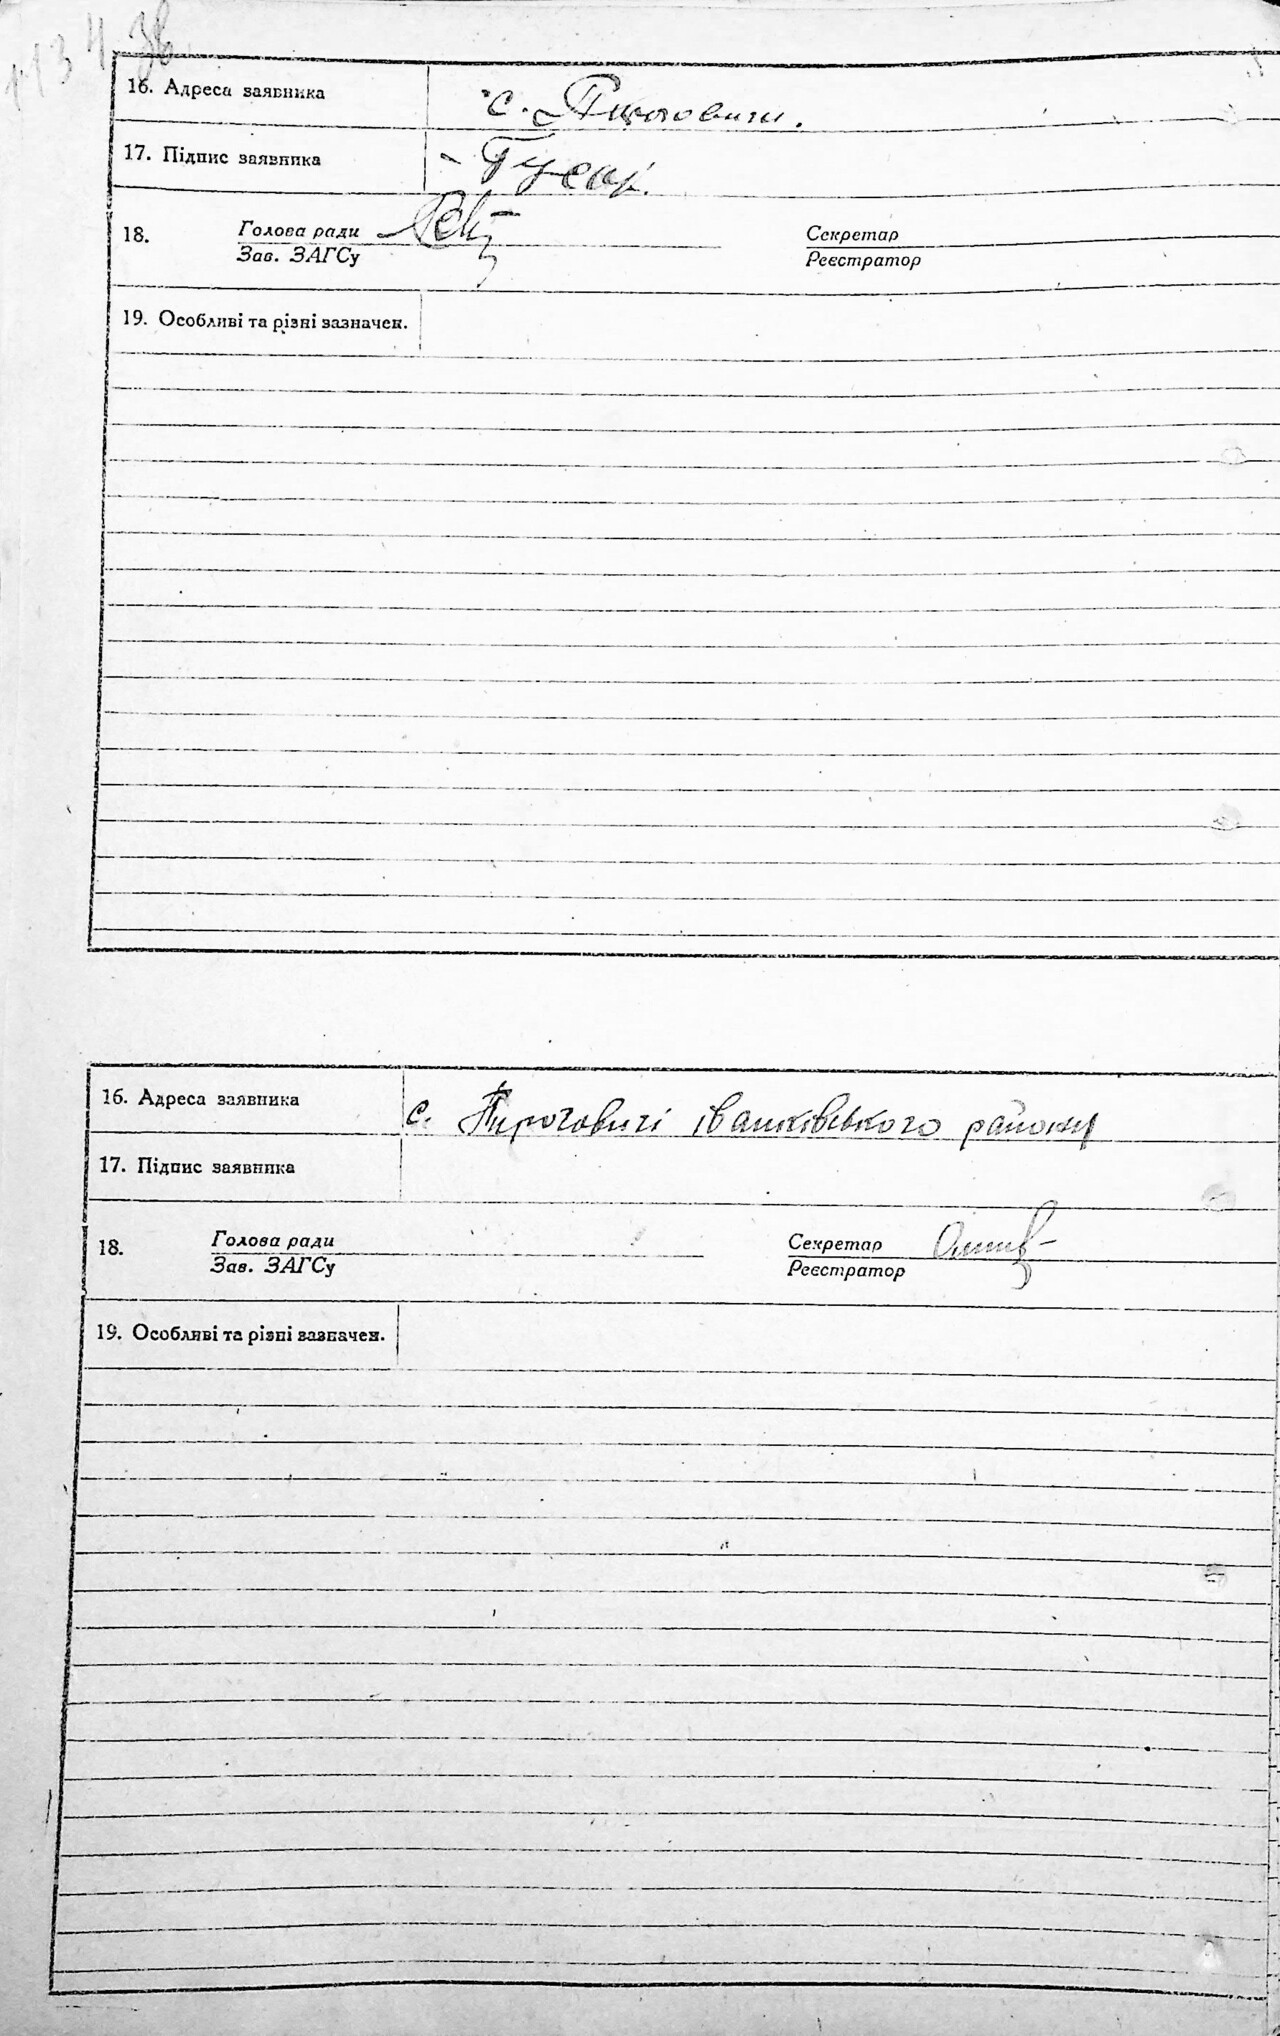 16. Адреса заявника с. Пироговичи.
17. Підпис заявника Гусар.
18. Голова ради Секретар
Зав. ЗАГСу Реєстратор
19. Особливі та різні зазначен.
16. Адреса заявника с. Пироговичі іванківського району
17. Підпис заявника
18. Голова ради Секретар
Зав. ЗАГСу Реєстратор
19. Особливі та різні зазначен.